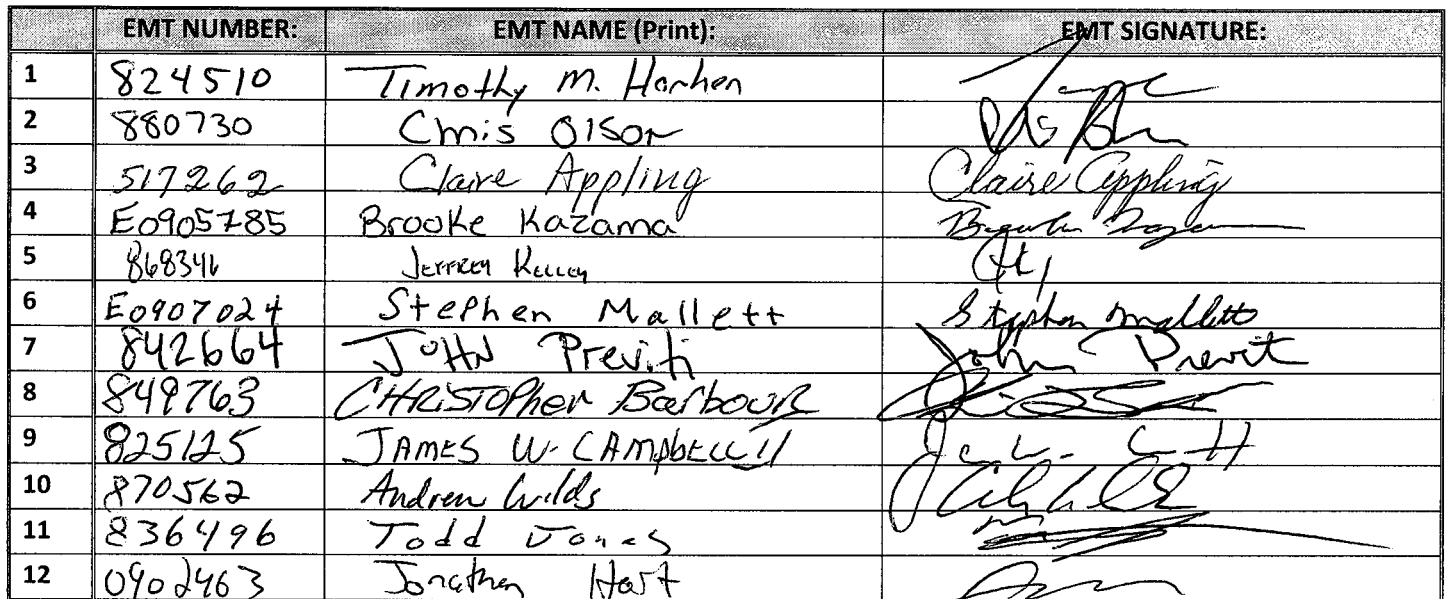 EMT NUMBER: EMT NAME (Print): EMT SIGNATURE:
1 824510 Timothy M. Hanhen
2 880730 Chris Olson
3 517262 Claire Appling Claire Appling
4 E0905785 Brooke Kazama
5 868346 Jeffrey Kelley
6 E0907024 Stephen Mallett Stephen Mallett
7 842664 JOHN Previti John Previt
8 849763 CHRISTOPher Barbour
9 825125 JAMES W. CAMPBELL II
10 870562 Andrew Wilds
11 836496 Todd Jones
12 0902463 Jonathan Hart